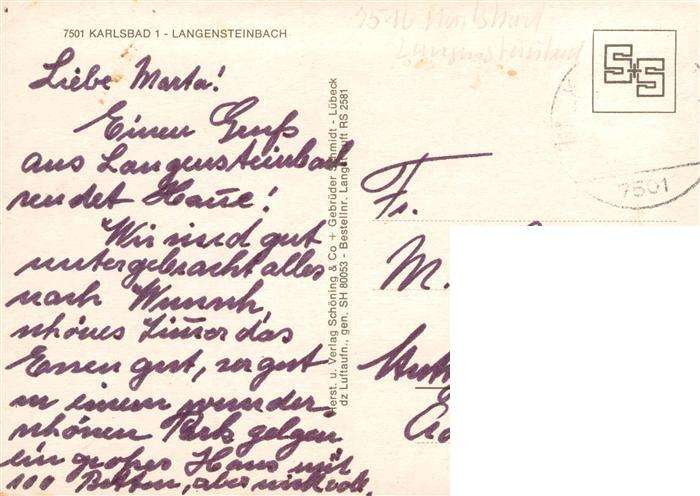 7501 KARLSBAD 1 - LANGENSTEINBACH
Liebe Marta!
Einen Gruß
aus Langensteinbach
sendet Hane!
Wir sind gut
untergebracht alles
nach Wunsch,
schönes Zimer das
Essen gut, sogut
in einem wunder
schönen Park gelgen
ein großes Haus mit
100 Betten, aber nicht voll.
Herst. u. Verlag Schöning & Co + Gebrüder Schmidt - Lübeck
dz Luftaufn., gen. SH 80053 - Bestellnr. Langst. Luft RS 2581
S+S
7501
Fr.
M.